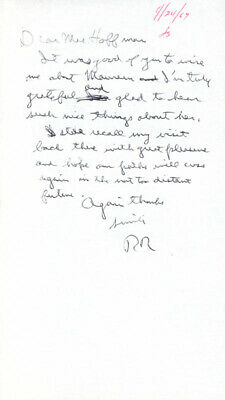 9/24/67
Dear Mrs Hoffman
It was good of you to write
me about Maureen and I'm truly
grateful and glad to hear
such nice things about her.
I also recall my visit
back there with great pleasure
and hope our paths will cross
again in the not too distant
future.
Again thanks
RR